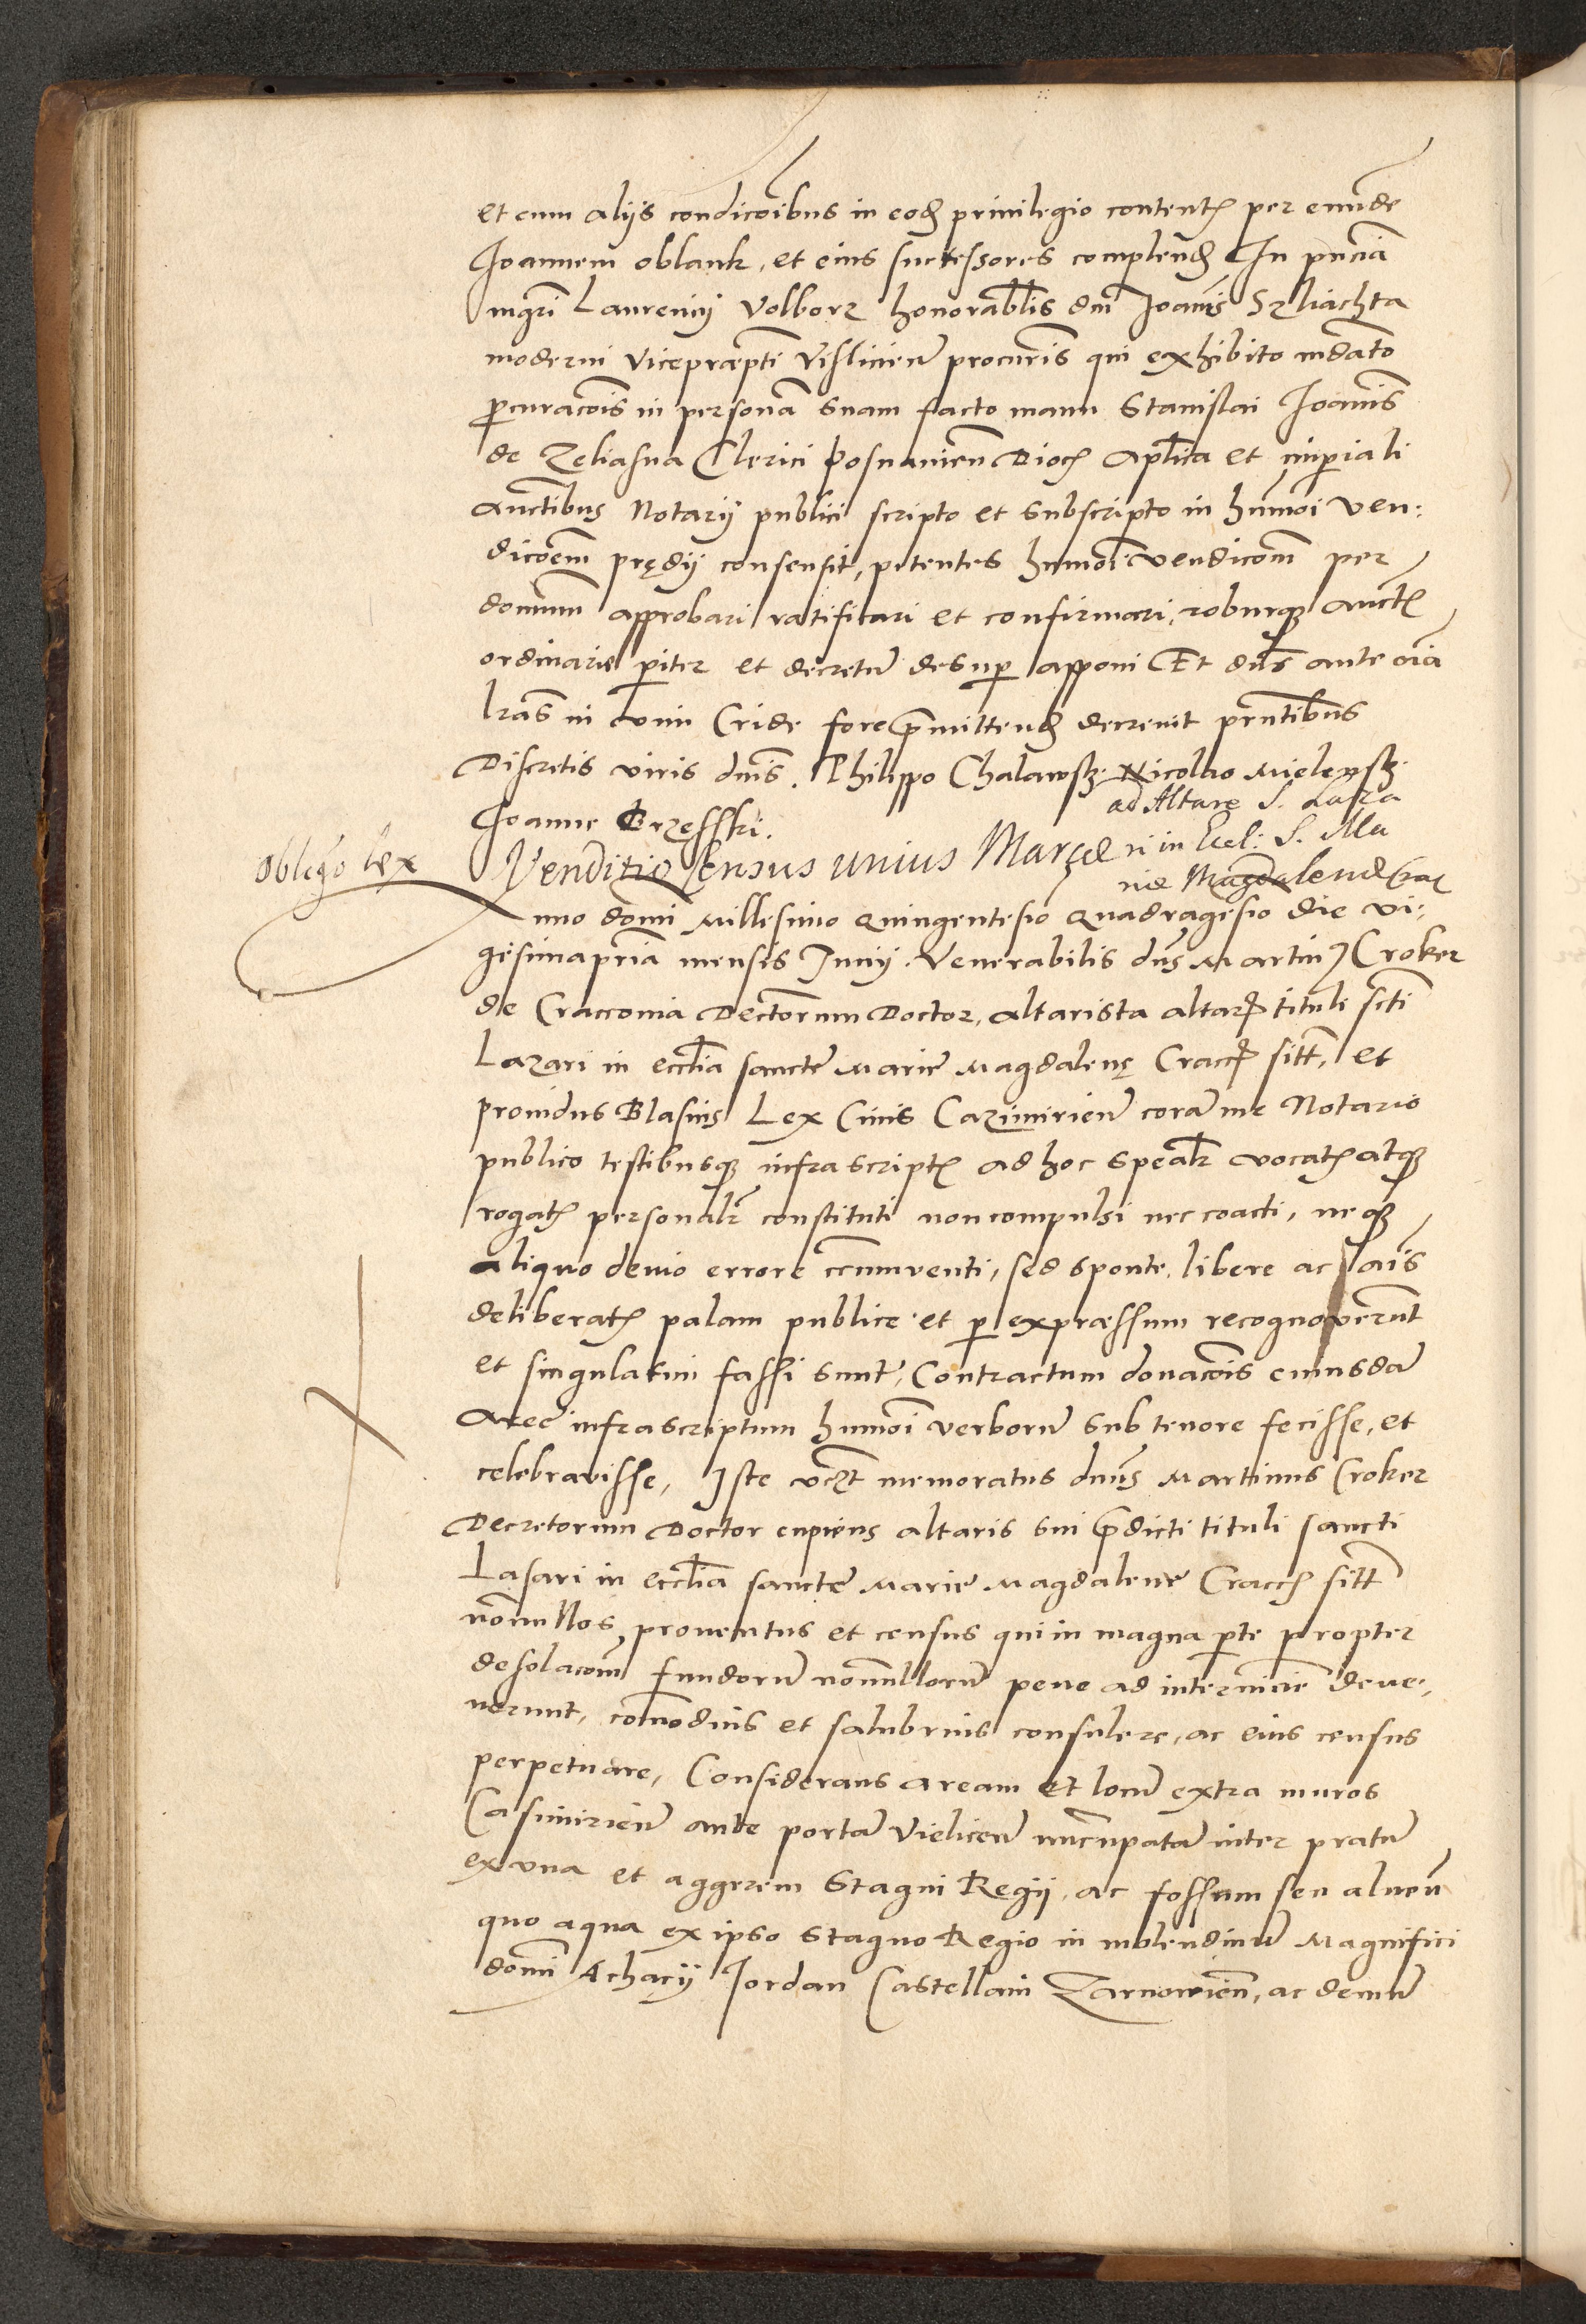 et cum alijs condicoibus in eod privilegio content per eunde
Joannem oblank, et eius successores complend In pncia
mgri Laurencij Volborz honorablis dni Joanis Szliachta
moderni Viceprepti Visliciens procuris qui exhibito mdato
procuracois in persona suam facto manu Stanislai Joanis
de Zeliasna Clerici Posnanien Dioc Aplica et imperiali
auctibus Notarij publici scripto et subscripto in humoi ven:
dicoem prędij consensit, petentes humoi vendicom per
domum approbari ratificari et confirmari, roburque auct
ordinarie piter et decretu desuper apponi Et dns ante oia
lras in Cride fore premittend decrevit pntibus
Discretis viris dnis. Philippo Chalawsk. Nicolao Mielensk.
Joanne Brzesski.
ad Altare S. Laza
Oblego Lex
Venditio Census unius Marcae ri in Eccl: S. Ma
riae Magdalenae Crac
nno domi Millesimo quingentesio quadragesio die vi:
gesimapria mensis Junij. Venerabilis dns Martin Croker
de Cracovia Dectorum Doctor, altarista altar tituli scti
Lazari in ecclia sancte Marie Magdalenę Cracc sitt, et
providus Blasius Lex Civis Cazimirien cora me Notario
publico testibusque infrascript ad hoc spealr vocat atque
rogat personalr constituti non compulsi nec coacti, neque
aliquo devio errore circumventi, sed sponte, libere ac ais
deliberat palam publice et per expressum recognoverunt
et singulatim fassi sunt, Contractum donacois cuiusda
aree infrascriptum humoi verboru sub tenore fecisse, et
celebravisse, Iste memoratus dnus Martinus Croker
Decretorum Doctor cupiens altaris sui predicti tituli sancti
Lasari in ecclia sancte Marie Magdalene Cracc sitt
nonnullos proventus et census qui in magna parte propter
desolacom fundoru nonnulloru pene ad internicie deve:
nerunt, comodius et salubrius consulere, ac eius census
perpetuare, Considerans aream et locu extra muros
Casimirien ante porta Vielicen nuncupata inter pratu
ex una et aggerem Stagni Regij, ac fossum seu alveu
quo aqua ex ipso Stagno Regio in molendinu Magnifici
domi Achacij Jordan Castellani Zarnowien, ac demu